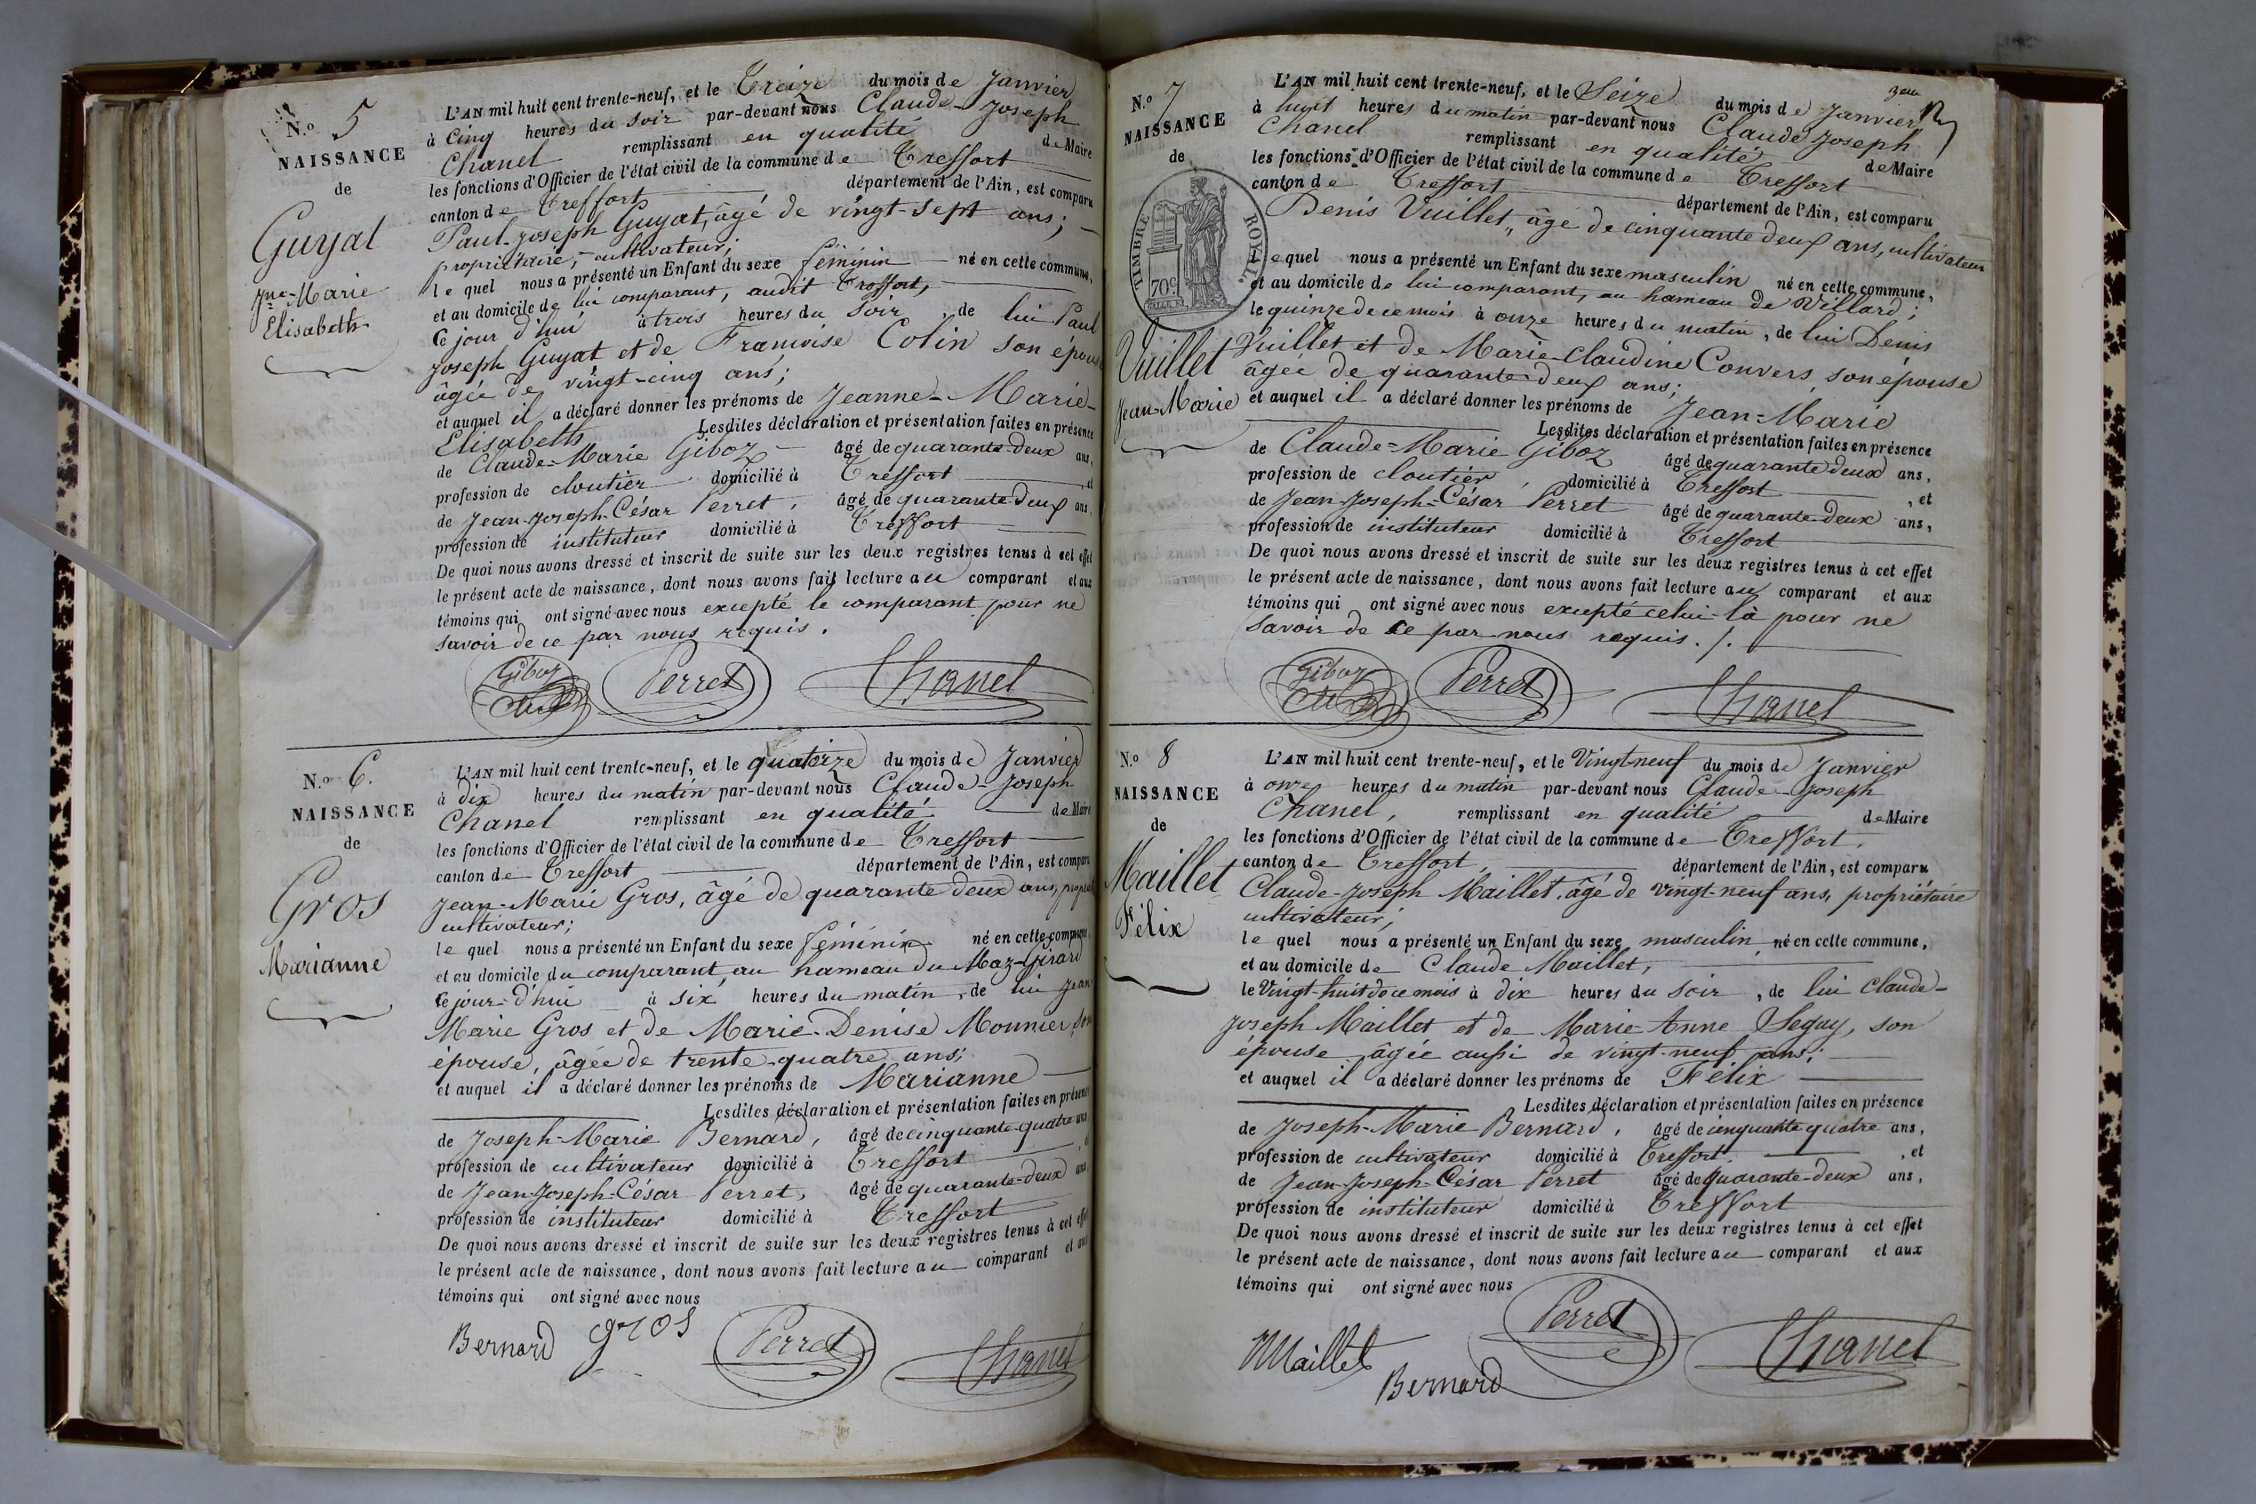 N.o 5
NAISSANCE
de
Guyat
Jne-Marie
Elisabeth
L'AN mil huit cent trente-neuf, et le Treize du mois de Janvier
à Cinq heures du soir par-devant nous Claude-Joseph
Chanel remplissant en qualité de Maire
les fonctions d'Officier de l'état civil de la commune de Treffort
canton de Treffort département de l'Ain, est comparu
Paul-Joseph Guyat, âgé de vingt-sept ans;
propriétaire, cultivateur;
lequel nous a présenté un Enfant du sexe féminin né en cette commune,
et au domicile de lui comparant, audit Treffort,
Ce jour d'hui à trois heures du soir, de lui Paul
Joseph Guyat et de Francoise Colin son épouse
âgée de vingt-cinq ans;
et auquel il a déclaré donner les prénoms de Jeanne-Marie-
Elisabeth Lesdites déclaration et présentation faites en présence
de Claude-Marie Giboz âgé de quarante-deux ans,
profession de cloutier domicilié à Treffort, et
de Jean-Joseph-César Perret, âgé de quarante-deux ans
profession de instituteur domicilié à Treffort
De quoi nous avons dressé et inscrit de suite sur les deux registres tenus à cet effet
le présent acte de naissance, dont nous avons fait lecture au comparant et aux
témoins qui ont signé avec nous excepté le comparant pour ne
savoir de ce par nous requis.
Giboz Perret Chanel
N.o 6.
NAISSANCE
de
Gros
Marianne
L'AN mil huit cent trente-neuf, et le quatorze du mois de Janvier
à dix heures du matin par-devant nous Claude-Joseph
Chanel remplissant en qualité de Maire
les fonctions d'Officier de l'état civil de la commune de Treffort
canton de Treffort département de l'Ain, est comparu
Jean-Marie Gros, âgé de quarante-deux ans,
cultivateur;
lequel nous a présenté un Enfant du sexe féminin né en cette commune
et au domicile du comparant, au hameau du Maz-Girard
Ce jour-d'hui à six heures du matin, de lui Jean
Marie Gros et de Marie-Denise Mounier, son
épouse, âgée de trente-quatre ans;
et auquel il a déclaré donner les prénoms de Marianne
Lesdites déclaration et présentation faites en présence
de Joseph-Marie Bernard, âgé de cinquante-quatre ans
profession de cultivateur domicilié à Treffort
de Jean-Joseph-César Perret, âgé de quarante-deux ans
profession de instituteur domicilié à Treffort
De quoi nous avons dressé et inscrit de suite sur les deux registres tenus à cet effet
le présent acte de naissance, dont nous avons fait lecture au comparant et aux
témoins qui ont signé avec nous
Bernard gros Perret Chanel
N.o 7
NAISSANCE
de
TIMBRE ROYAL
70c
Vuillet
Jean-Marie
L'AN mil huit cent trente-neuf, et le Seize du mois de Janvier
à huit heures du matin par-devant nous Claude Joseph
Chanel remplissant en qualité de Maire
les fonctions d'Officier de l'état civil de la commune de Treffort
canton de Treffort département de l'Ain, est comparu
Denis Vuillet, âgé de cinquante deux ans, cultivateur
lequel nous a présenté un Enfant du sexe masculin né en cette commune,
et au domicile de lui comparant, au hameau de Villard;
le quinze de ce mois à onze heures du matin, de lui Denis
Vuillet et de Marie-Claudine Convers, son épouse
âgée de quarante-deux ans;
et auquel il a déclaré donner les prénoms de Jean-Marie
Lesdites déclaration et présentation faites en présence
de Claude-Marie Giboz âgé de quarante deux ans,
profession de cloutier, domicilié à Treffort, et
de Jean-Joseph-César Perret âgé de quarante-deux ans,
profession de instituteur domicilié à Treffort
De quoi nous avons dressé et inscrit de suite sur les deux registres tenus à cet effet
le présent acte de naissance, dont nous avons fait lecture au comparant et aux
témoins qui ont signé avec nous excepté celui-là pour ne
savoir de ce par nous requis./.
Giboz Perret Chanel
N.o 8
NAISSANCE
de
Maillet
Félix
L'AN mil huit cent trente-neuf, et le Vingt-neuf du mois de Janvier
à onze heures du matin par-devant nous Claude-Joseph
Chanel, remplissant en qualité de Maire
les fonctions d'Officier de l'état civil de la commune de Treffort,
canton de Treffort, département de l'Ain, est comparu
Claude-Joseph Maillet, âgé de vingt-neuf ans, propriétaire
cultivateur;
lequel nous a présenté un Enfant du sexe masculin né en cette commune,
et au domicile de Claude Maillet,
le Vingt-huit de ce mois à dix heures du soir, de lui Claude-
Joseph Maillet et de Marie-Anne Seguy, son
épouse âgée aussi de vingt-neuf ans;
et auquel il a déclaré donner les prénoms de Félix
Lesdites déclaration et présentation faites en présence
de Joseph-Marie Bernard, âgé de cinquante quatre ans,
profession de cultivateur domicilié à Treffort, et
de Jean-Joseph-César Perret âgé de quarante-deux ans,
profession de instituteur domicilié à Treffort
De quoi nous avons dressé et inscrit de suite sur les deux registres tenus à cet effet
le présent acte de naissance, dont nous avons fait lecture au comparant et aux
témoins qui ont signé avec nous
Maillet Bernard Perret Chanel